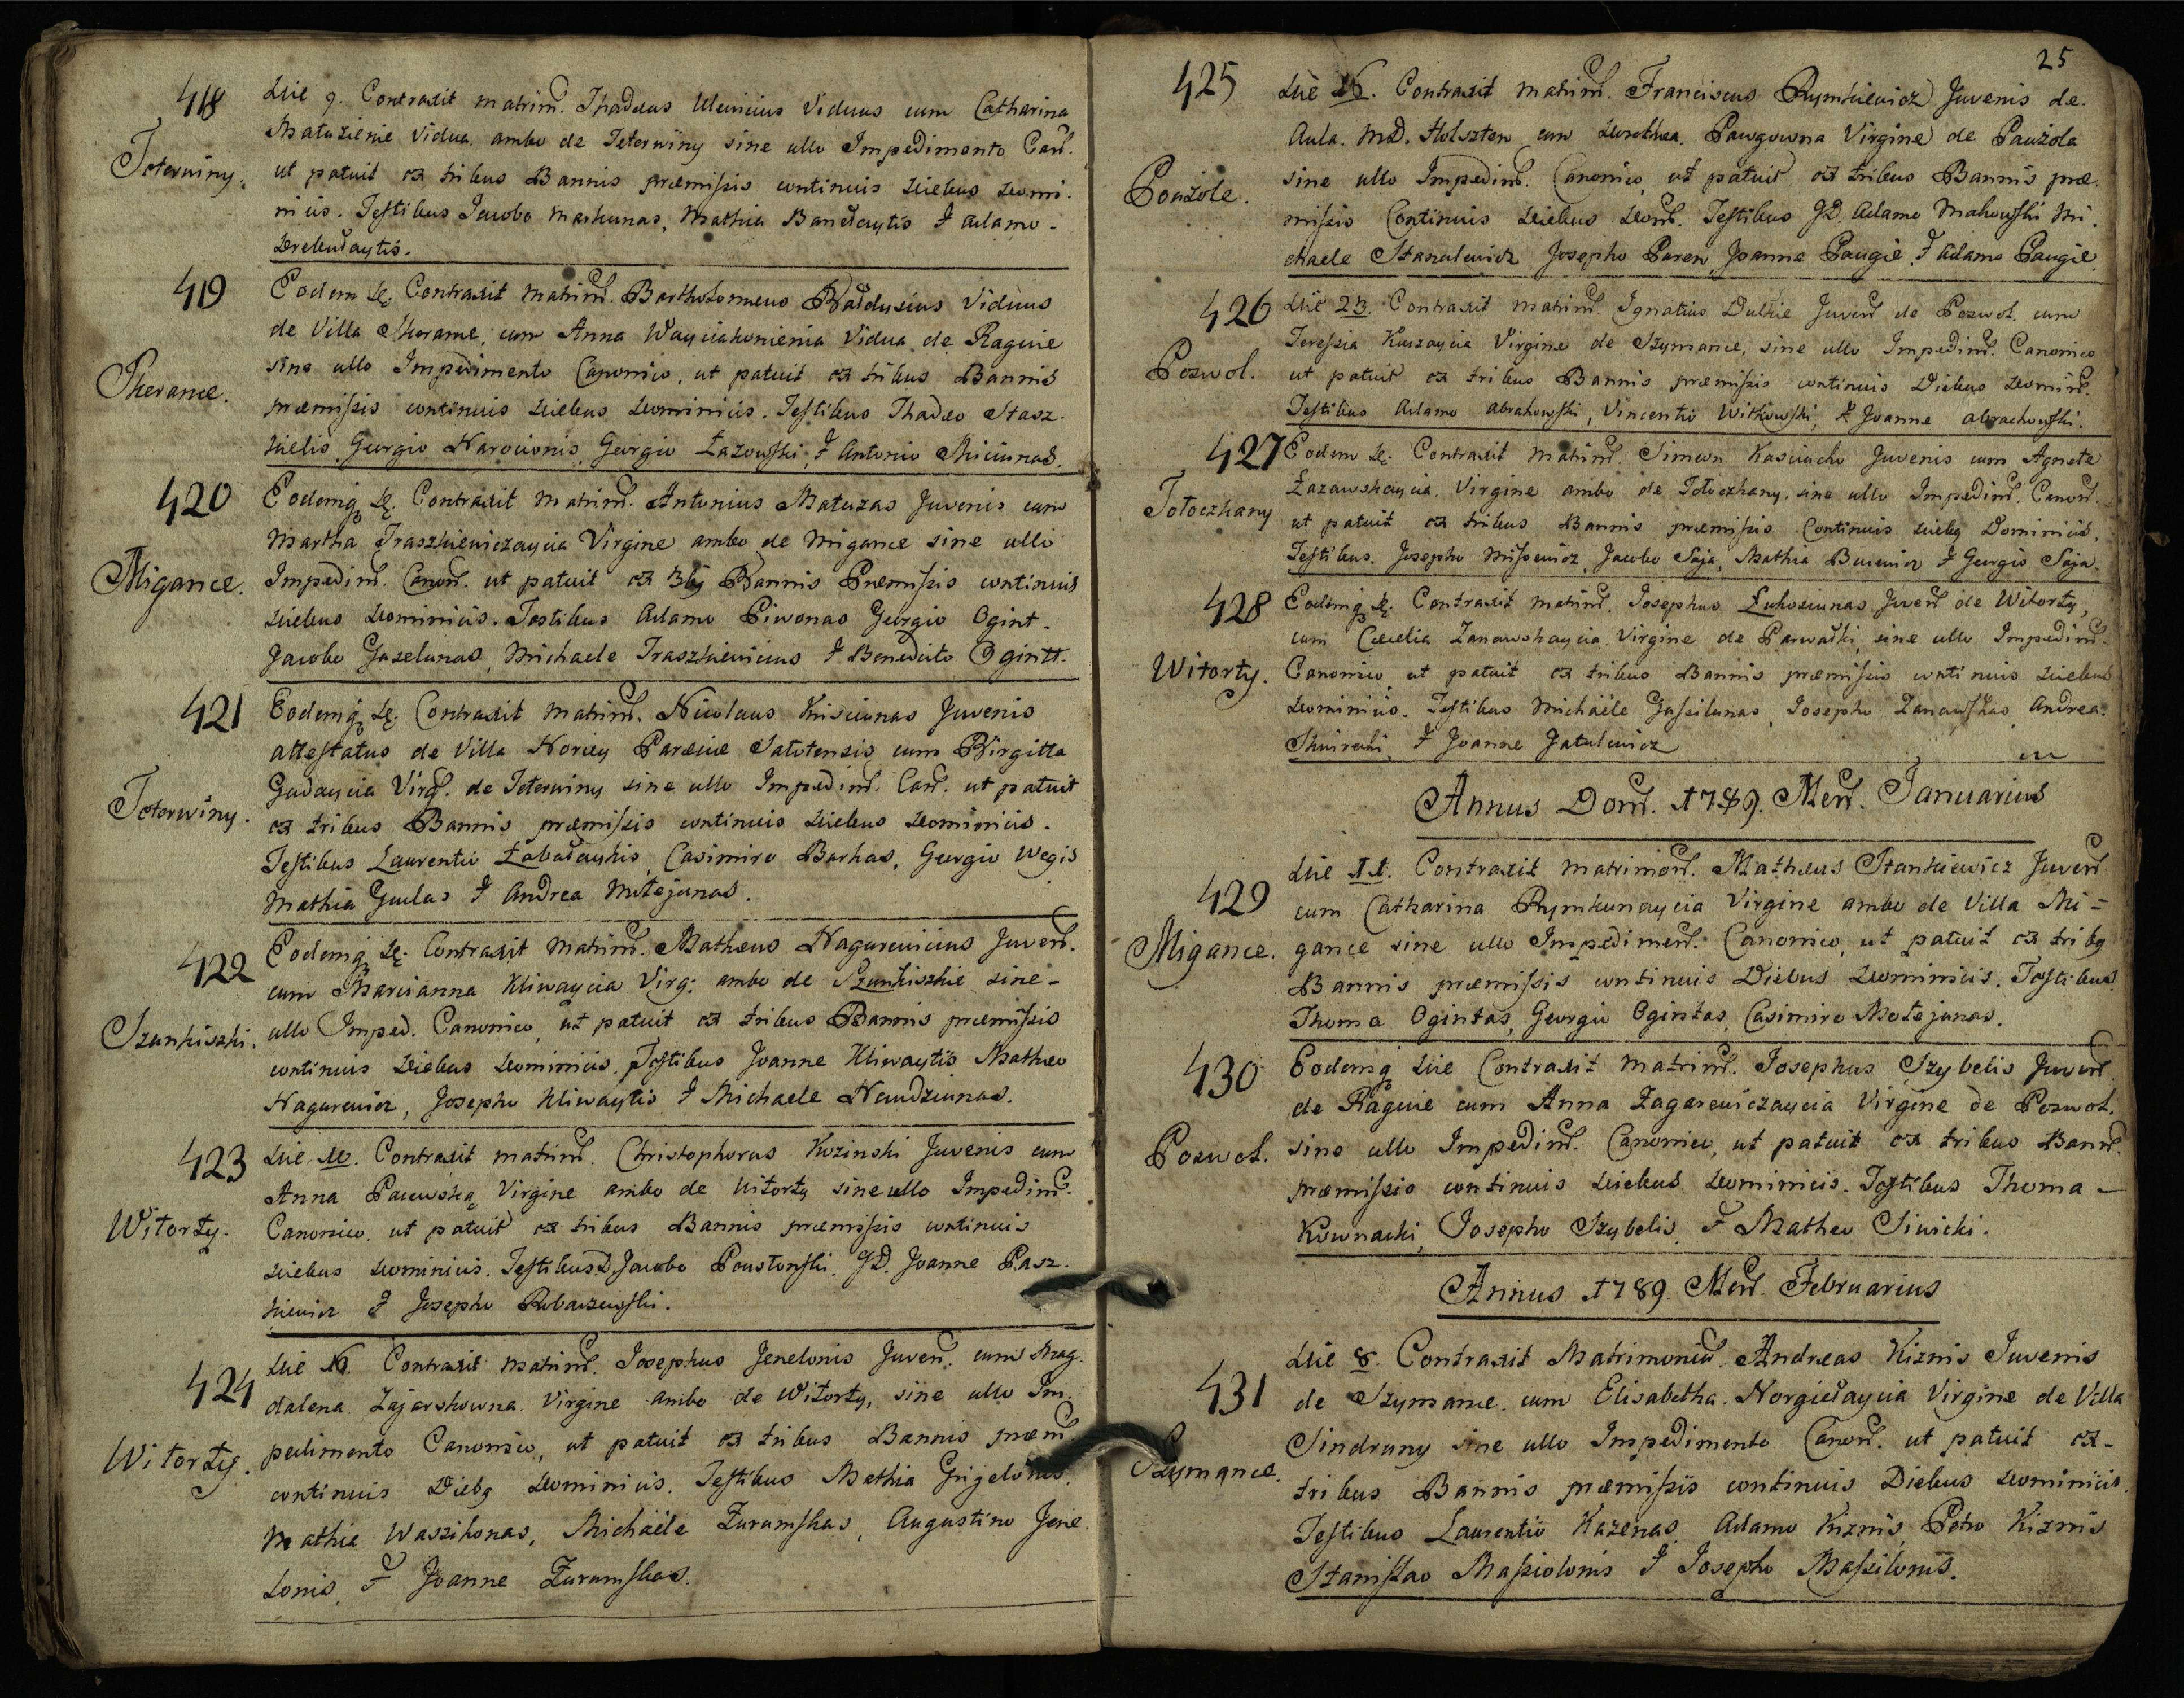 418
Die 9. Contraxit matrim. Thadeus Ulevicius Viduus cum Catharina
Teterwiny.
Matuzienie Vidua ambo de Teterwiny sine ullo Impedimento Can.
ut patuit ex tribus Bannis præmissis continuis Diebus Domi-
nicis. Testibus Jacobo Markunas, Mathia Banedaytis & Adamo
Drebudaytis.
419
Eodem de. Contraxit matrim. Bartholomeus Raddusius Viduus
de Villa Skerance, cum Anna Wayciakonienia Vidua de Ragüie
Skerance.
sine ullo Impedimento Canonico, ut patuit ex tribus Bannis
præmissis continuis Diebus Dominicis. Testibus Thadeo Stasz-
kielis, Georgio Narocionis, Georgio Łazowski, & Antonio Miciunas.
420
Eodemq de. Contraxit matrim. Antonius Matuzas Juvenis cum
Martha Traszkiewiczaycia Virgine ambo de Migance sine ullo
Migance.
Impedim. Canon. ut patuit ex 3bq Bannis Præmissis continuis
Diebus Dominicis. Testibus Adamo Piwonas Georgio Ogint.
Jacobo Gaselunas, Michaele Traszkievicius & Benedicto Ogintt.
421
Eodemq de. Contraxit matrim. Nicolaus Krisciunas Juvenis
attestatus de Villa Noriey Paræciæ Salotensis, cum Birgitta
Gudaycia Virg. de Teterwiny sine ullo Impedim. Can. ut patuit
Teterwiny.
ex tribus Bannis præmissis continuis Diebus Dominicis.
Testibus Laurentio Łabadayskis, Casimiro Barkas, Georgio Wegis
Mathia Gudas & Andrea Motejunas.
422
Eodemq de. Contraxit matrim. Matheus Nagurevicius Juven.
cum Marcianna Kliwaycia Virg: ambo de Szunkiszkie sine
Szunkiszki.
ullo Imped. Canonico, ut patuit ex tribus Bannis præmissis
continuis Diebus Dominicis, Testibus Joanne Kliwaytis Matheo
Nagurevicz, Josepho Kliwaytis & Michaele Naudziunas.
423
Die 10. Contraxit matrim. Christophorus Kozinski Juvenis cum
Anna Pacewską Virgine ambo de Witorty sine ullo Impedim.
Witorty.
Canonico, ut patuit ex tribus Bannis præmissis continuis
Diebus Dominicis. Testibus D. Jacobo Poustonski. GD. Joanne Pasz-
kievicz & Josepho Rubaszewski.
424
Die 16. Contraxit matrim. Josephus Jenelonis Juven. cum Mag-
dalena Zajarskowna Virgine ambo de Witorty, sine ullo Im-
Witorty.
pedimento Canonico, ut patuit ex tribus Bannis præm
continuis Diebq Dominicis. Testibus Mathia Grigelonis,
Mathia Waszkonas, Michaële Zuramskas, Augustino Jene
lonis, & Joanne Zuramskas.
25
425
Die 16. Contraxit matrim. Franciscus Rymkiewicz Juvenis de
Aula MD. Holszten cum Dorothea Pawgowna Virgine de Paużole
Poużole.
sine ullo Impedim. Canonico, ut patuit ex tribus Bannis præ-
missis Continuis Diebus Dom. Testibus GD. Adamo Makowski Mi-
chaele Stanulewicz Josepho Paren Joanne Paugie & Adamo Paugie
426
Die 23. Contraxit matrim. Ignatius Dulkie Juven de Pozwol. cum
Teressia Kuszaycia Virgine de Szymance, sine ullo Impedim. Canonico
Pozwol.
ut patuit ex tribus Bannis præmissis continuis Diebus Domin.
Testibus Adamo Abrahowski, Vincentio Witkowski, & Joanne Abrachowski.
427
Eodem de. Contraxit matrim. Simeon Kasciucho Juvenis cum Agnete
Totoczkany
Łazawskaycia Virgine ambo de Totoczkany, sine ullo Impedim. Canon.
ut patuit ex tribus Bannis præmissis Continuis Diebq Dominicis,
Testibus. Josepho Missevicz, Jacobo Saja, Mathia Bucevicz & Georgio Saja.
428
Eodemq de. Contraxit matrim. Josephus Łukosiunas Juven de Witorty,
cum Cæcilia Zanawskaycia Virgine de Parwalki, sine ullo Impedim.
Witorty.
Canonico, ut patuit ex tribus Bannis præmissis continuis Diebus
Dominicis. Testibus Michaële Gassilunas, Josepho Zanawskas, Andrea
Skuirecki, & Joanne Jatulewicz
Annus Dom. 1789. Men. Januarius
Die 11. Contraxit matrimon. Matheus Stankiewicz Juven
429
cum Catharina Rymkunaycia Virgine ambo de Villa Mi=
Migance.
gance sine ullo Impedimen. Canonico, ut patuit ex tribq
Bannis præmissis continuis Diebus Dominicis. Testibus
Thoma Ogintas, Georgio Ogintas, Casimiro Motejunas.
430
Eodemq Die Contraxit matrim. Josephus Szybelis Juven
de Raguie cum Anna Zagarewiczaycia Virgine de Pozwol.
Pozwol.
sine ullo Impedim. Canonico, ut patuit ex tribus Bann.
præmissis continuis Diebus Dominicis. Testibus Thoma
Kownacki, Josepho Szybelis, & Matheo Siwicki.
Annus 1789. Men. Februarius
Die 8. Contraxit Matrimonium. Andreas Kiznis Juvenis
431
de Szymance cum Elisabetha Norgiedaycia Virgine de Villa
Sindruny sine ullo Impedimento Canon. ut patuit ex
Szymance.
tribus Bannis præmissis continuis Diebus Dominicis.
Testibus Laurentio Kazenas, Adamo Kiznis, Petro Kiznis
Stanislao Massiolonis & Josepho Massilonis.